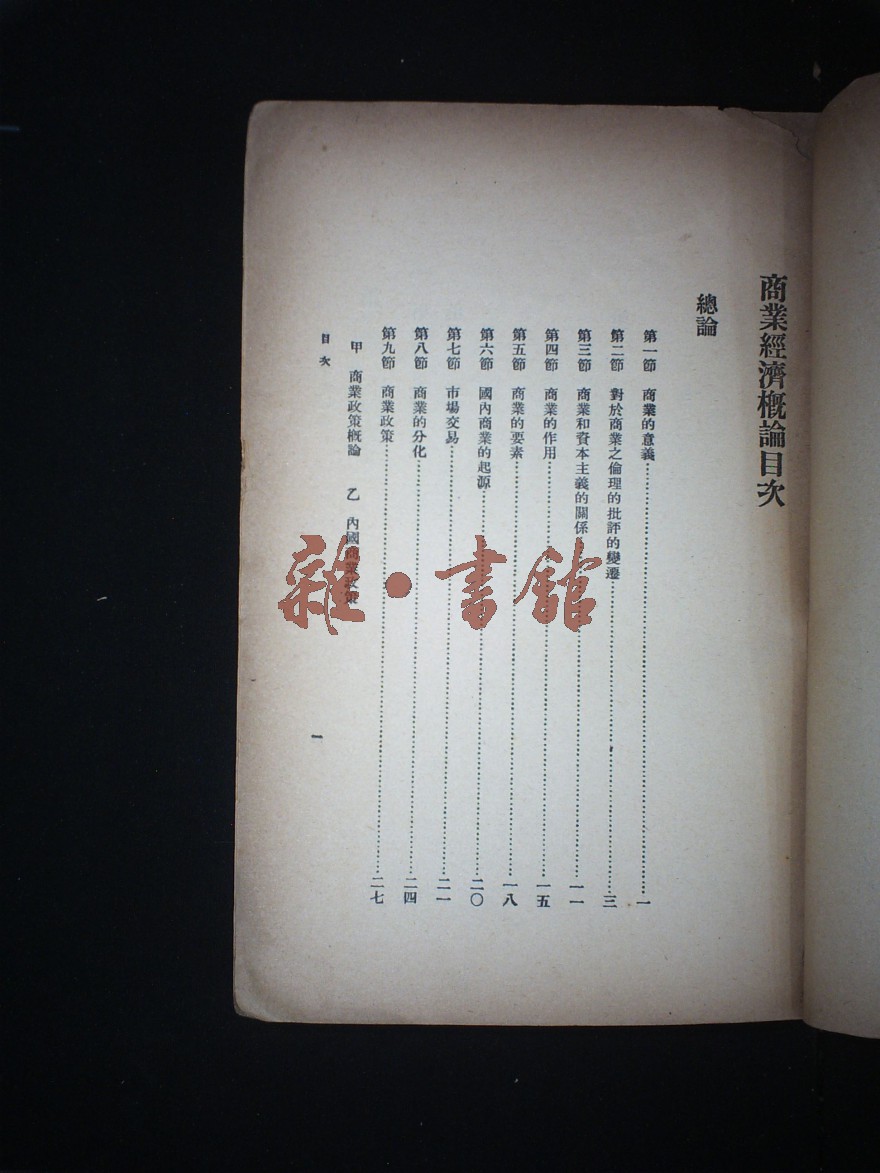 商業經濟概論目次
總論
第一節　商業的意義……一
第二節　對於商業之倫理的批評的變遷……三
第三節　商業和資本主義的關係……一一
第四節　商業的作用……一五
第五節　商業的要素……一八
第六節　國內商業的起源……二〇
第七節　市場交易……二一
第八節　商業的分化……二四
第九節　商業政策……二七
甲　商業政策概論　乙　內國商業政策
目次　一
雜·書館